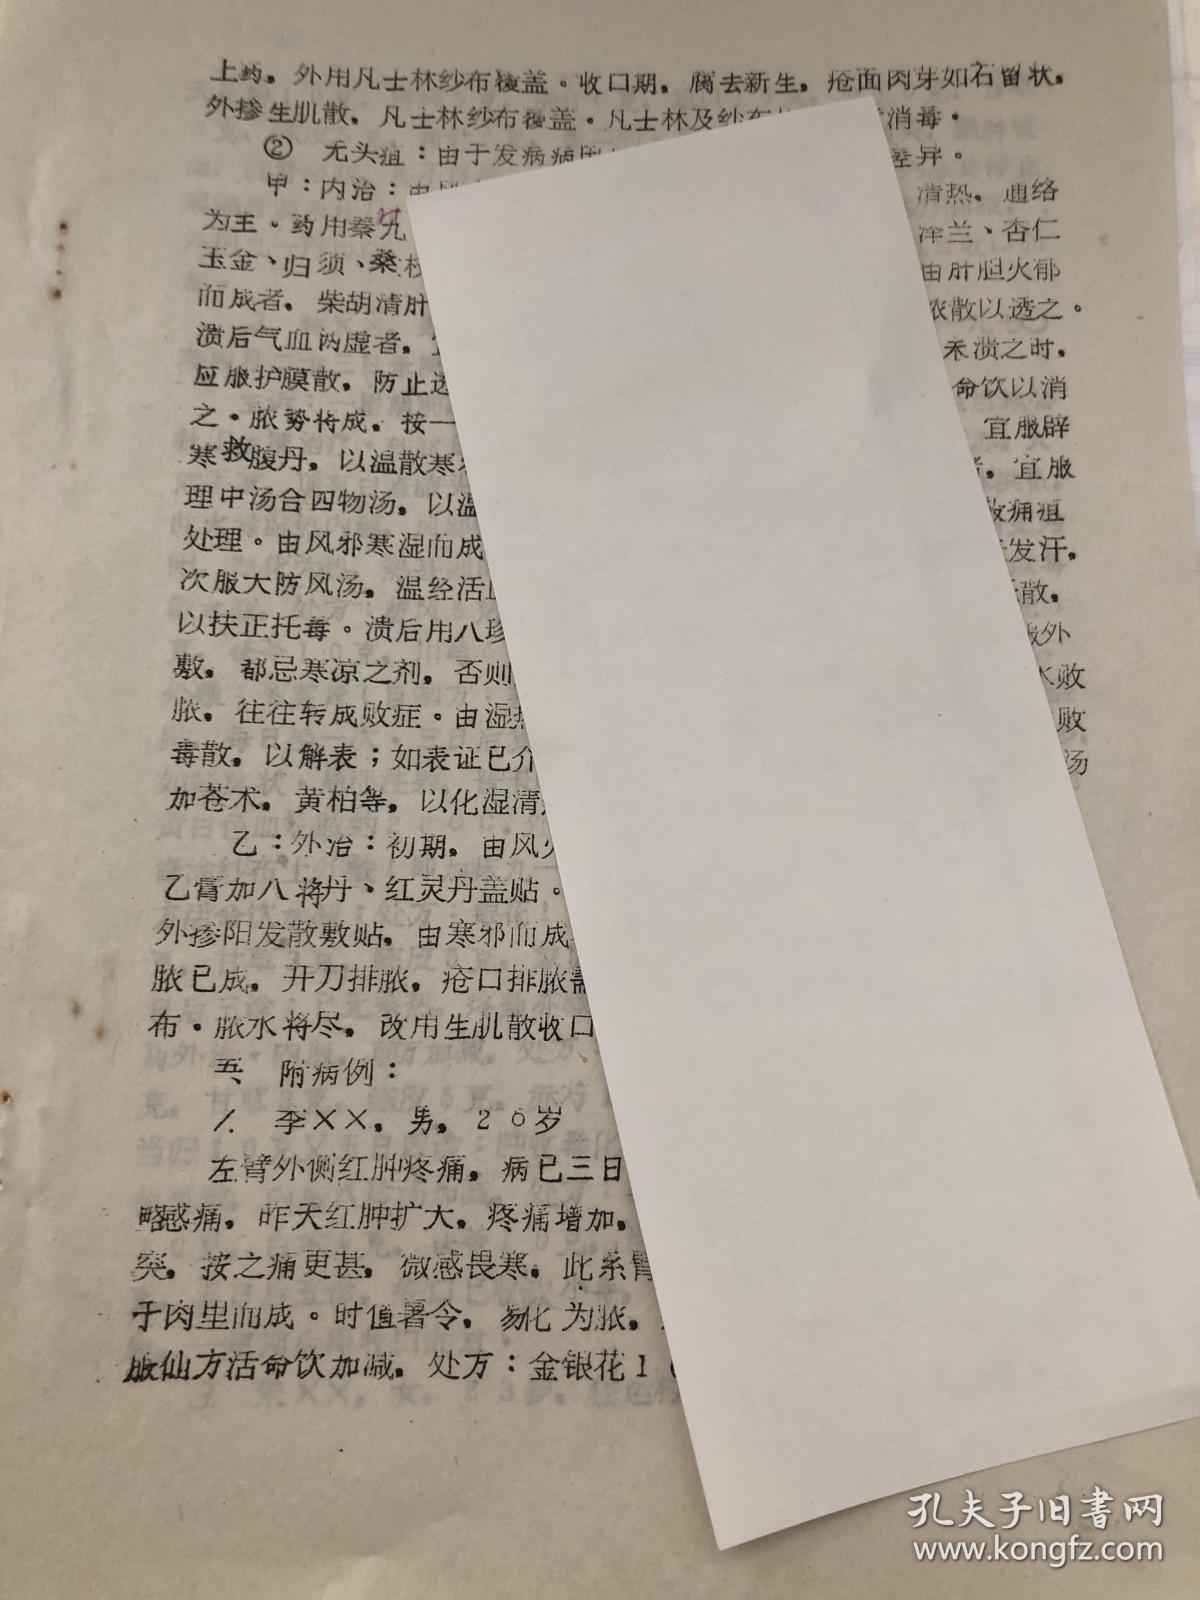 上药，外用凡士林纱布覆盖。收口期，腐去新生，疮面肉芽如石留状，
外掺生肌散，凡士林纱布覆盖·凡士林及纱布 消毒·
② 无头疽：由于发病病因 差异。
甲：内治：由 清热，通络
为主·药用秦艽 泽兰、杏仁
玉金、归须、桑枝 由肝胆火郁
而成者，柴胡清肝 脓散以透之。
溃后气血两虚者， 未溃之时，
应服护膜散，防止透 命饮以消
之·脓势将成，按一 宜服辟
寒救腹丹，以温散寒 ，宜服
理中汤合四物汤，以温 痈疽
处理。由风邪寒湿而成 发汗，
次服大防风汤，温经活血 散，
以扶正托毒。溃后用八珍 服外
敷，都忌寒凉之剂，否则 水败
脓，往往转成败症。由湿热 败
毒散，以解表；如表证已介 汤
加苍术，黄柏等，以化湿清
乙：外治：初期，由风火
乙膏加八将丹、红灵丹盖贴。
外掺阳发散敷贴，由寒邪而成
脓已成，开刀排脓，疮口排脓
布·脓水将尽，改用生肌散收口
五、 附病例：
1. 李××，男，26岁
左臂外侧红肿疼痛，病已三日
略感痛，昨天红肿扩大，疼痛增加，
突，按之痛更甚，微感畏寒，此系臂
于肉里而成。时值暑令，易化为脓，
服仙方活命饮加减，处方：金银花1
孔夫子旧书网
www.kongfz.com